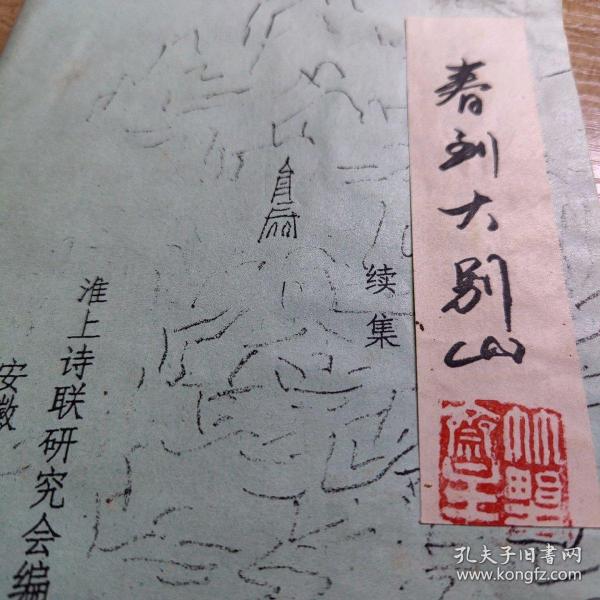 春到大别山
续集
淮上诗联研究会编
安徽
孔夫子旧书网
www.kongfz.com